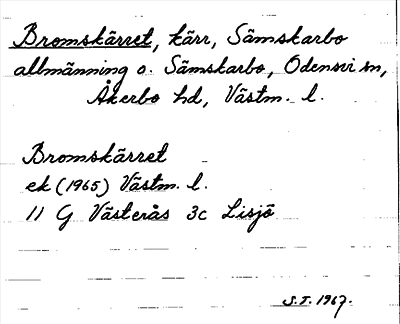 Bromskärret, kärr, Sämskarbo
allmänning o. Sämskarbo, Odensvi sn,
Åkerbo hd, Västm. l.
Bromskärret
ek (1965) Västm. l.
11 G Västerås 3c Lisjö
S.T. 1967.